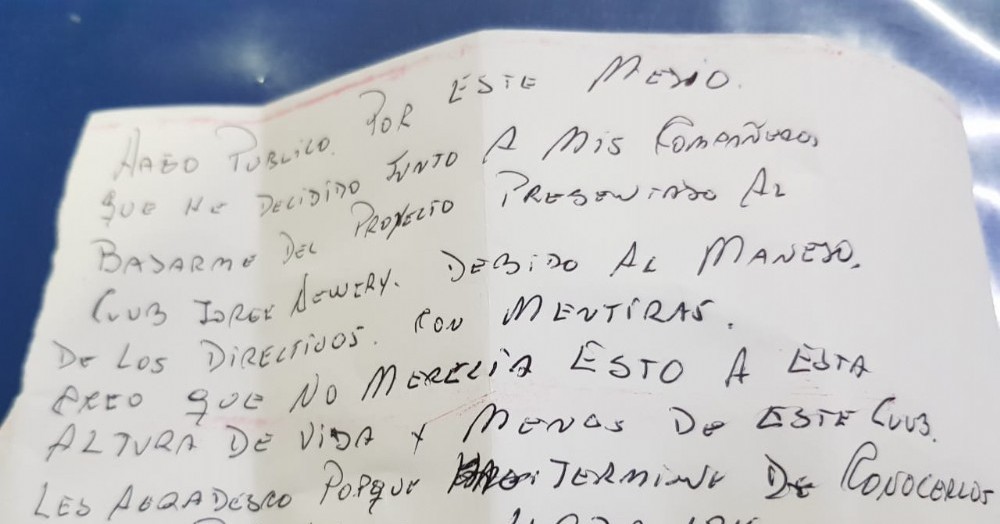 HAGO PUBLICO. POR ESTE MEDIO.
QUE HE DECIDIDO JUNTO A MIS COMPAÑEROS,
BAJARME DEL PROYECTO PRESENTADO AL
CLUB JORGE NEWERY. DEBIDO AL MANEJO.
DE LOS DIRECTIVOS. CON MENTIRAS.
CREO QUE NO MERECIA ESTO A ESTA
ALTURA DE VIDA Y MENOS DE ESTE CLUB.
LES AGRADESCO PORQUE TERMINE DE CONOCERLOS